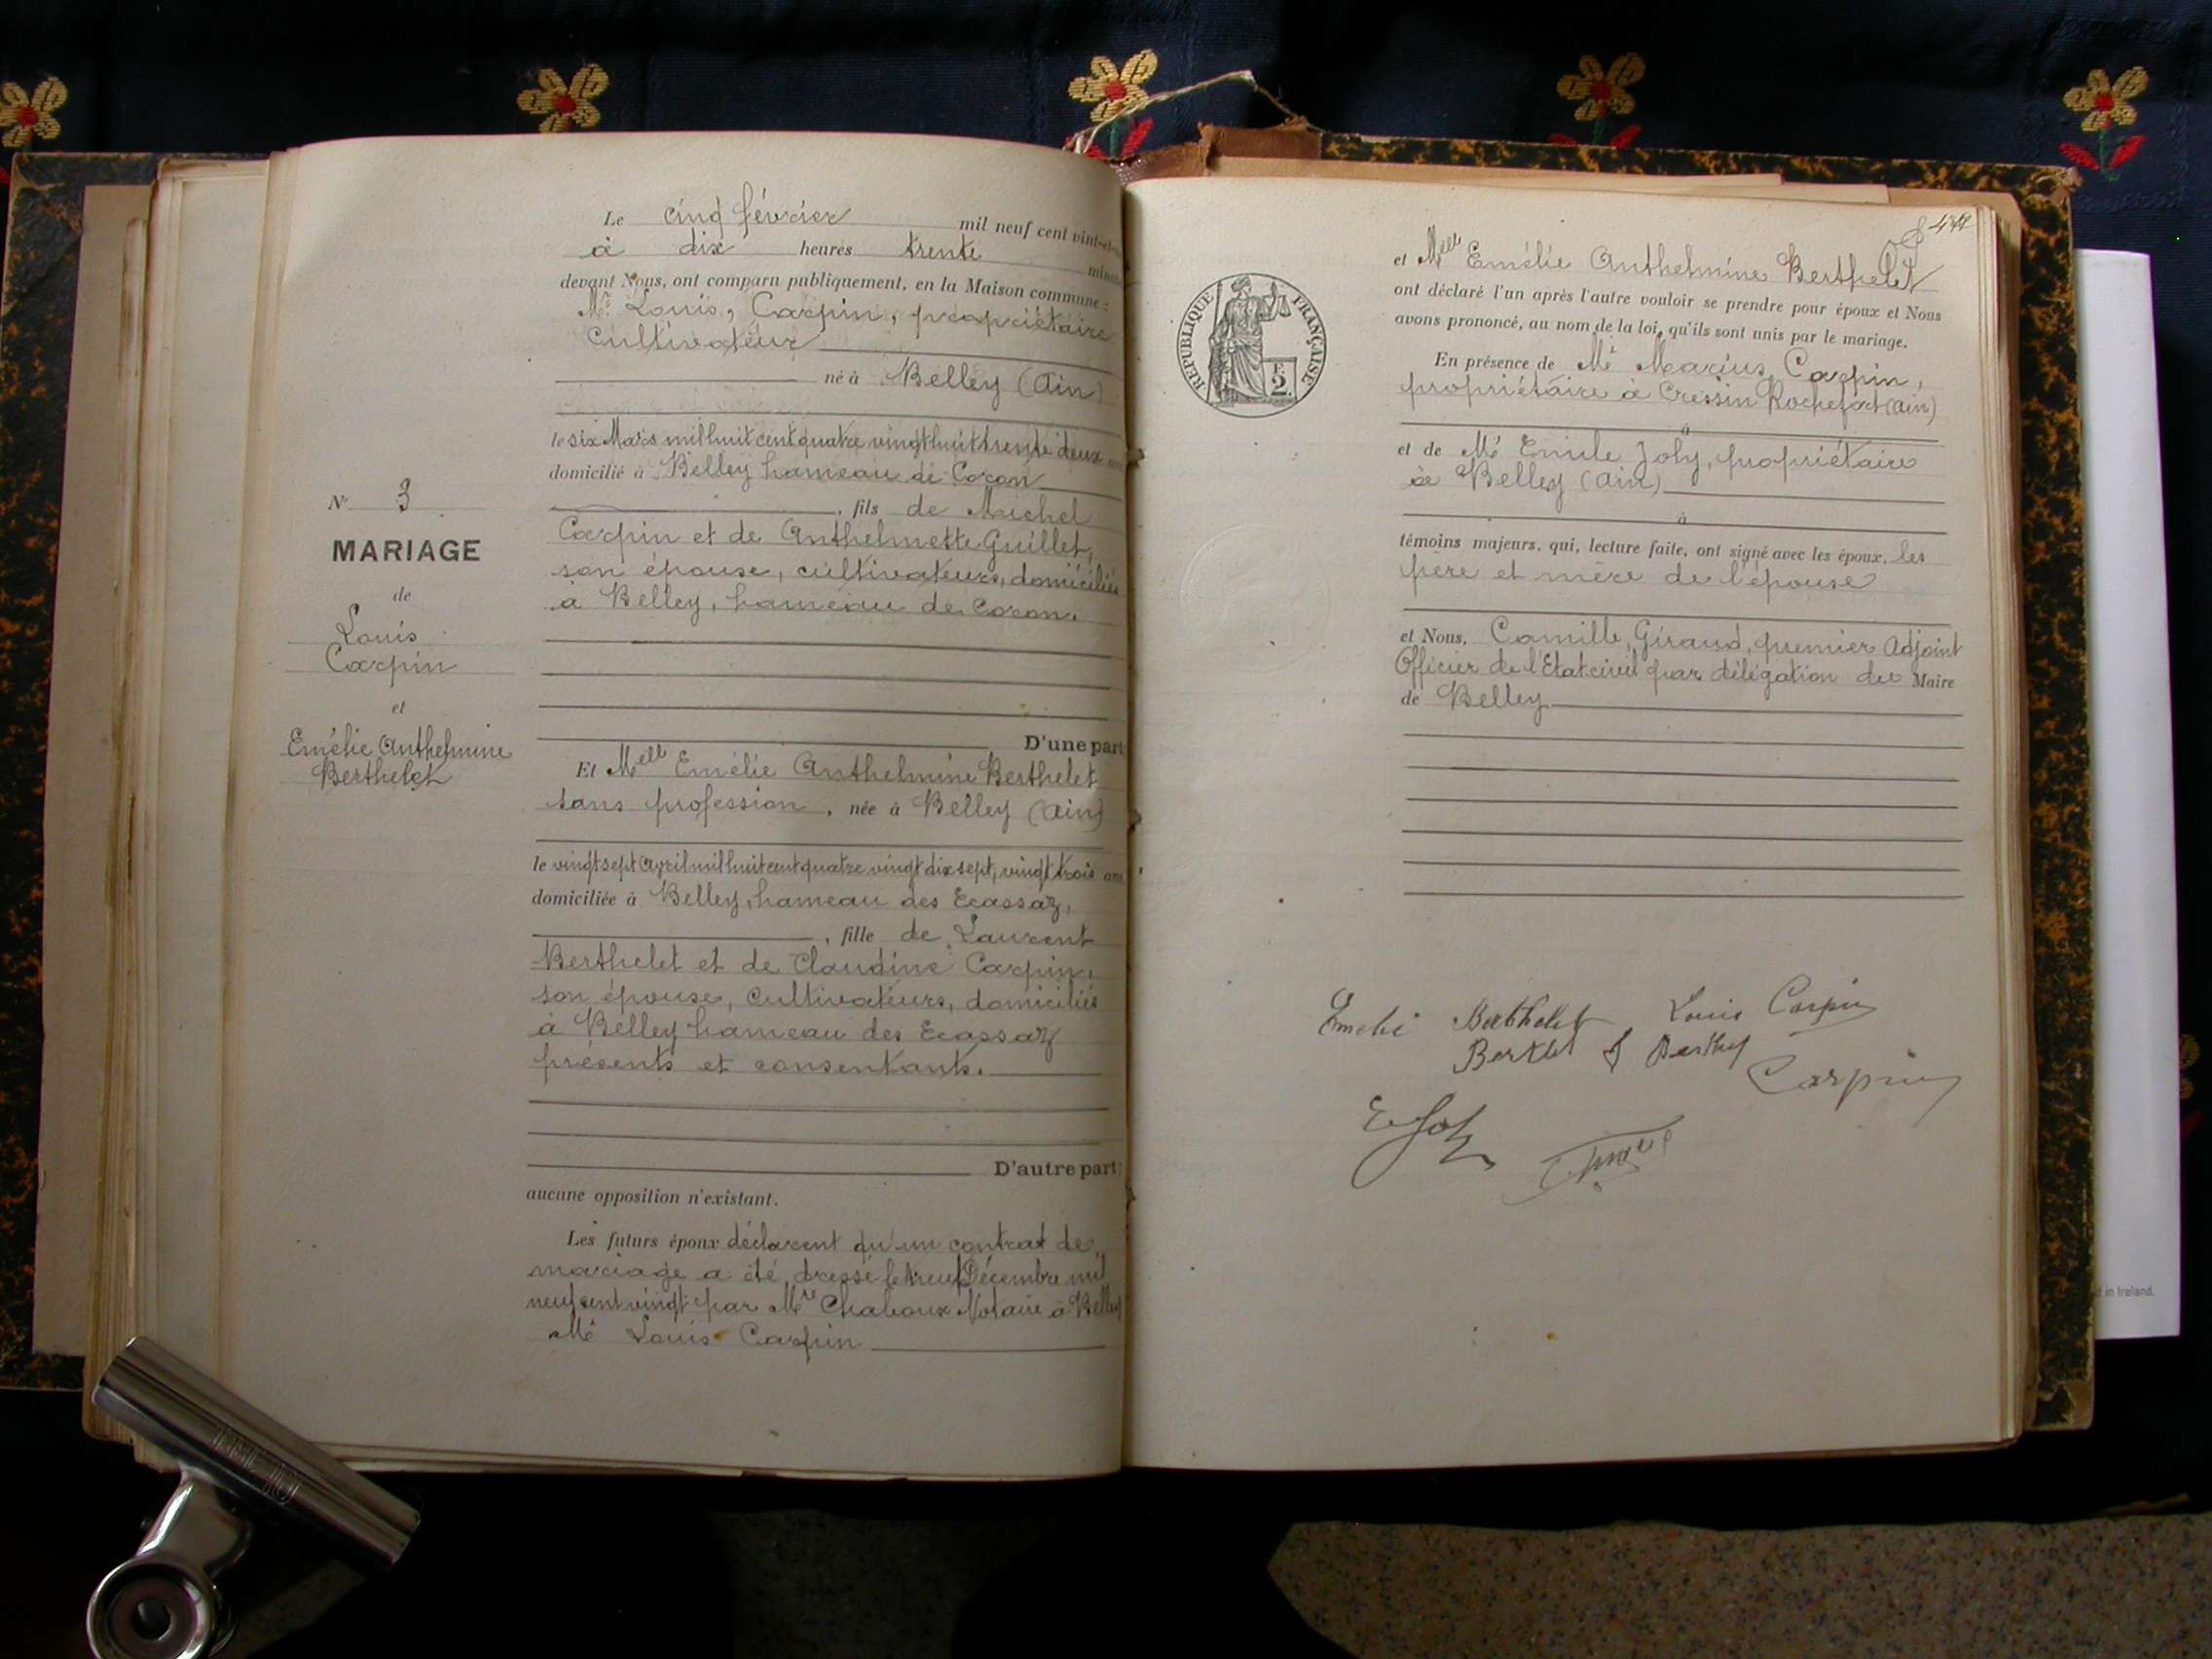 Le cinq février mil neuf cent vint-et-
à dix heures trente
devant Nous, ont comparu publiquement, en la Maison commune :
Mr. Louis, Carpin, propriétaire
Cultivateur
né à Belley (Ain)
le six Mars mil huit cent quatre vingt huit trente deux
domicilié à Belley hameau de Coron
, fils de Michel
Carpin et de Anthelmette Guillet,
son épouse, cultivateurs, domiciliés
à Belley, hameau de Coron.
D'une part
Et Melle Emélie Anthelmine Berthelet
sans profession, née à Belley (Ain)
le vingt sept Avril mil huit cent quatre vingt dix sept, vingt trois ans
domiciliée à Belley, hameau des Ecassaz,
, fille de Laurent
Berthelet et de Claudine Carpin,
son épouse, Cultivateurs, domiciliés
à Belley hameau des Ecassaz
présents et consentants.
D'autre part;
aucune opposition n'existant.
Les futurs époux déclarent qu'un contrat de
mariage a été dressé le neuf Décembre mil
neuf cent vingt par Mre Chaboux Notaire à Belley
Mr Louis Carpin
N° 3
MARIAGE
de
Louis
Carpin
et
Emélie Anthelmine
Berthelet
et Melle Emélie Anthelmine Berthelet
ont déclaré l'un après l'autre vouloir se prendre pour époux et Nous
avons prononcé, au nom de la loi, qu'ils sont unis par le mariage.
En présence de Mr Marius, Carpin,
propriétaire à Cressin Rochefort (Ain)
à
et de Mr Emile Joly, propriétaire
à Belley (Ain)
à
témoins majeurs, qui, lecture faite, ont signé avec les époux, les
père et mère de l'épouse
et Nous, Camille, Giraud, premier Adjoint
Officier de l'Etat civil par délégation du Maire
de Belley
REPUBLIQUE FRANÇAISE
F.
2.
Emelie Berthelet Louis Carpin
Carpin
E Joly
in Ireland.